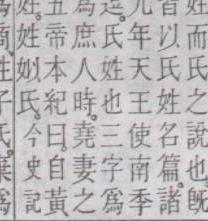 姓而氏之說也旣
以氏姓名篇諸
元年天王使南季
氏姓也三字爲
爲庶人時堯妻之
五帝本紀曰自黃
姓姒氏今史記
商姓子氏棄爲